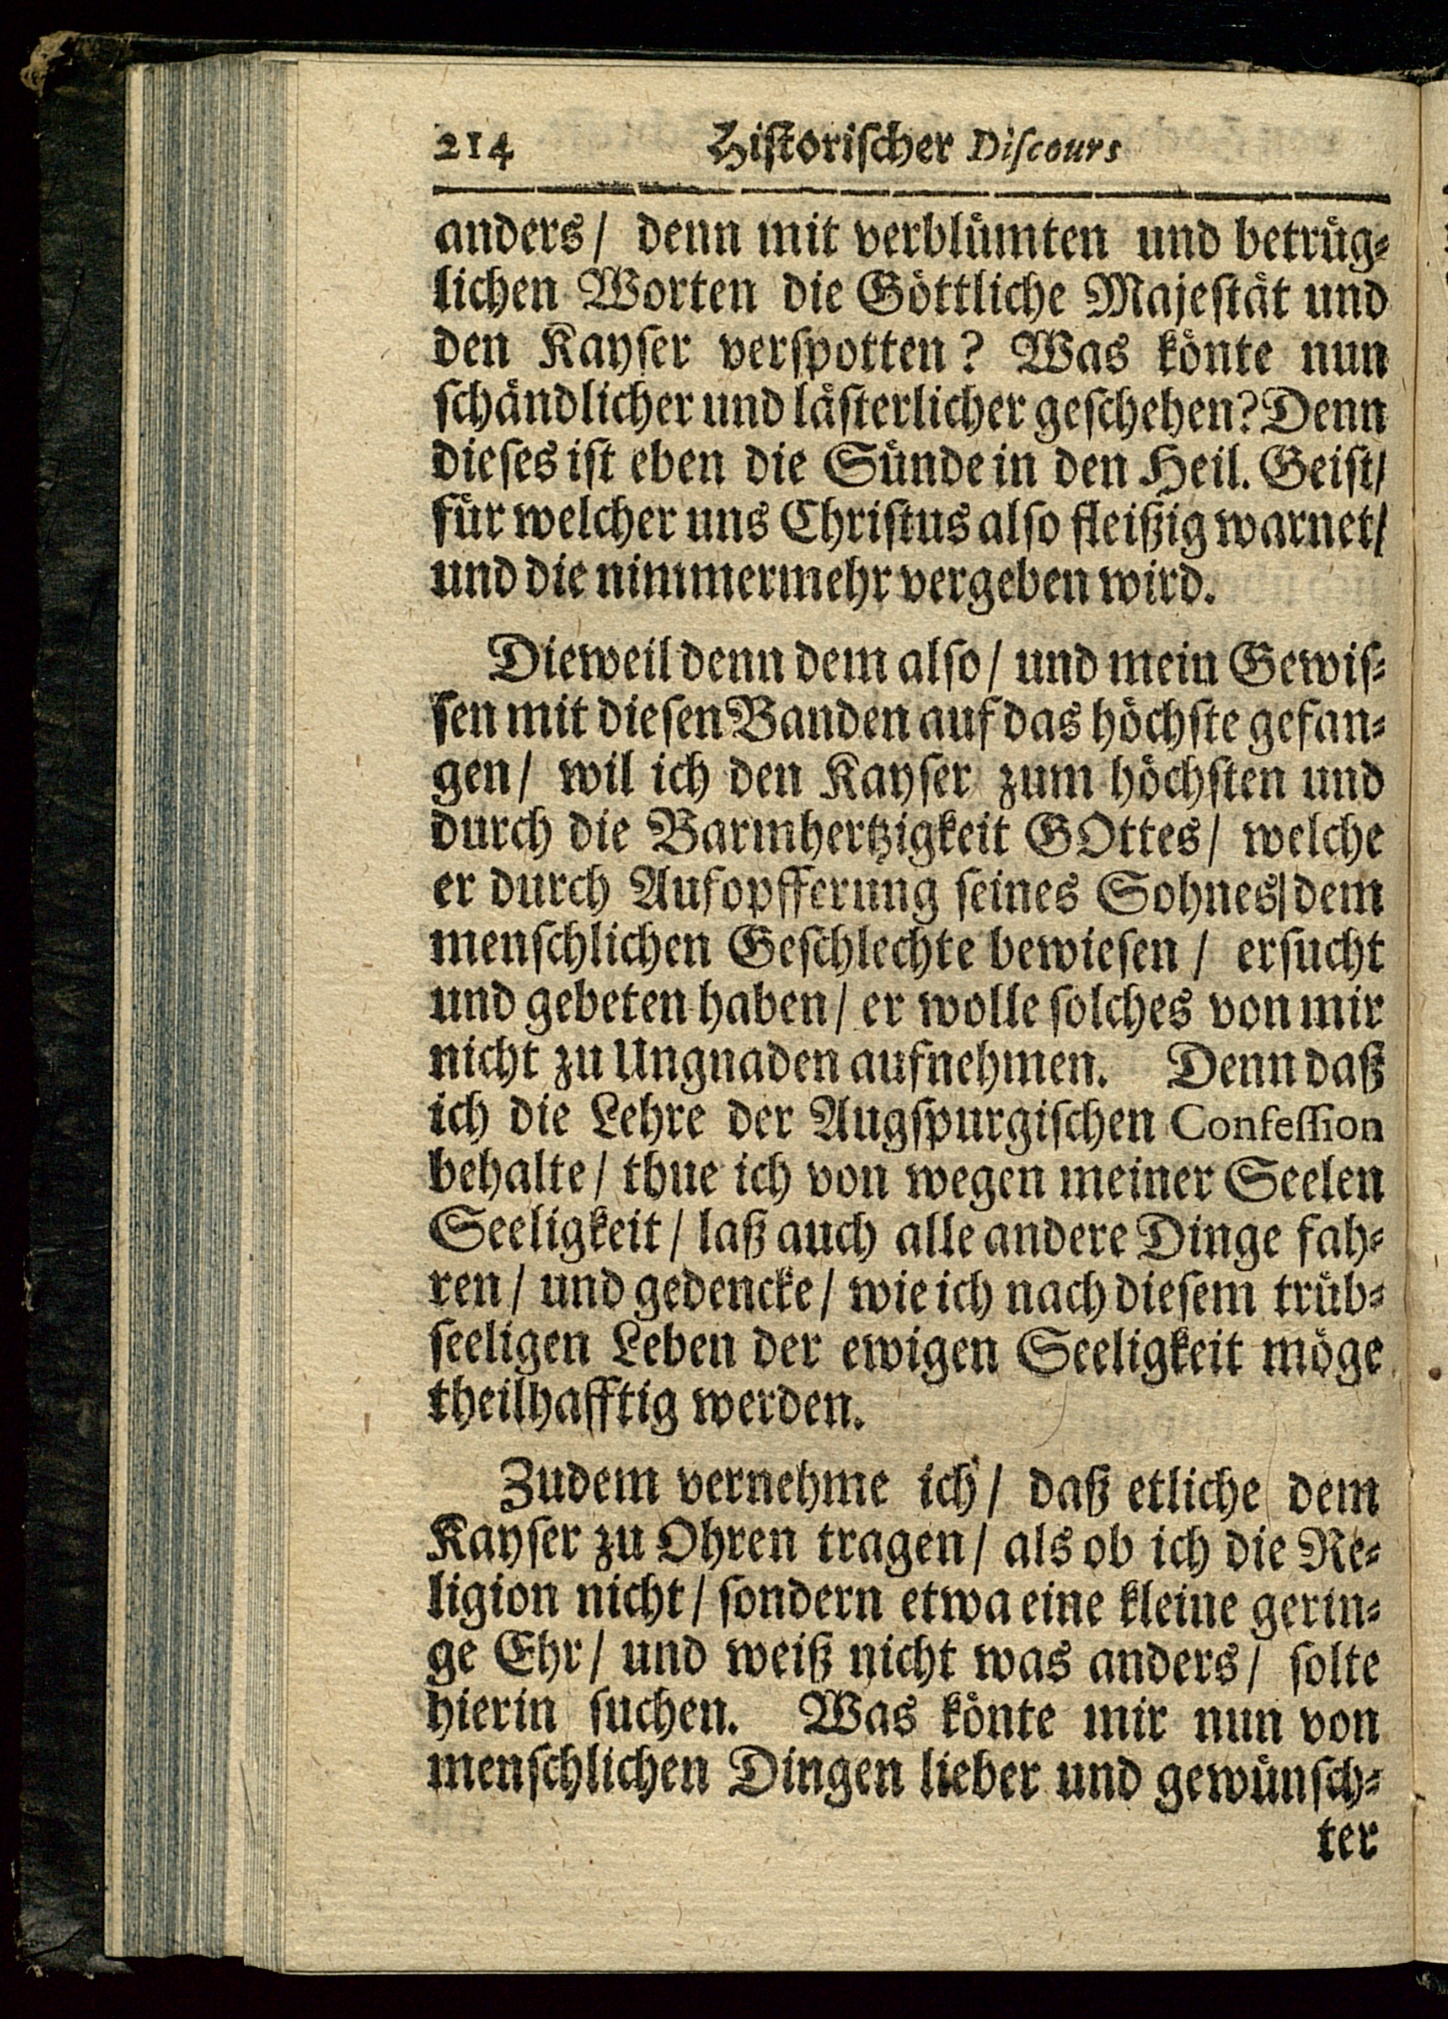 214 Historischer Discours
anders/ denn mit verblümten und betrüg⸗
lichen Worten die Göttliche Majestät und
den Kayser verspotten? Was könte nun
schändlicher und lästerlicher geschehen? Denn
dieses ist eben die Sünde in den Heil. Geist/
für welcher uns Christus also fleißig warnet/
und die nimmermehr vergeben wird.
Dieweil denn dem also/ und mein Gewis⸗
sen mit diesen Banden auf das höchste gefan⸗
gen/ wil ich den Kayser zum höchsten und
durch die Barmhertzigkeit GOttes/ welche
er durch Aufopfferung seines Sohnes/ dem
menschlichen Geschlechte bewiesen/ ersucht
und gebeten haben/ er wolle solches von mir
nicht zu Ungnaden aufnehmen. Denn daß
ich die Lehre der Augspurgischen Confession
behalte/ thue ich von wegen meiner Seelen
Seeligkeit/ laß auch alle andere Dinge fah⸗
ren/ und gedencke/ wie ich nach diesem trüb⸗
seeligen Leben der ewigen Seeligkeit möge
theilhafftig werden.
Zudem vernehme ich/ daß etliche dem
Kayser zu Ohren tragen/ als ob ich die Re⸗
ligion nicht/ sondern etwa eine kleine gerin⸗
ge Ehr/ und weiß nicht was anders/ solte
hierin suchen. Was könte mir nun von
menschlichen Dingen lieber und gewünsch⸗
ter